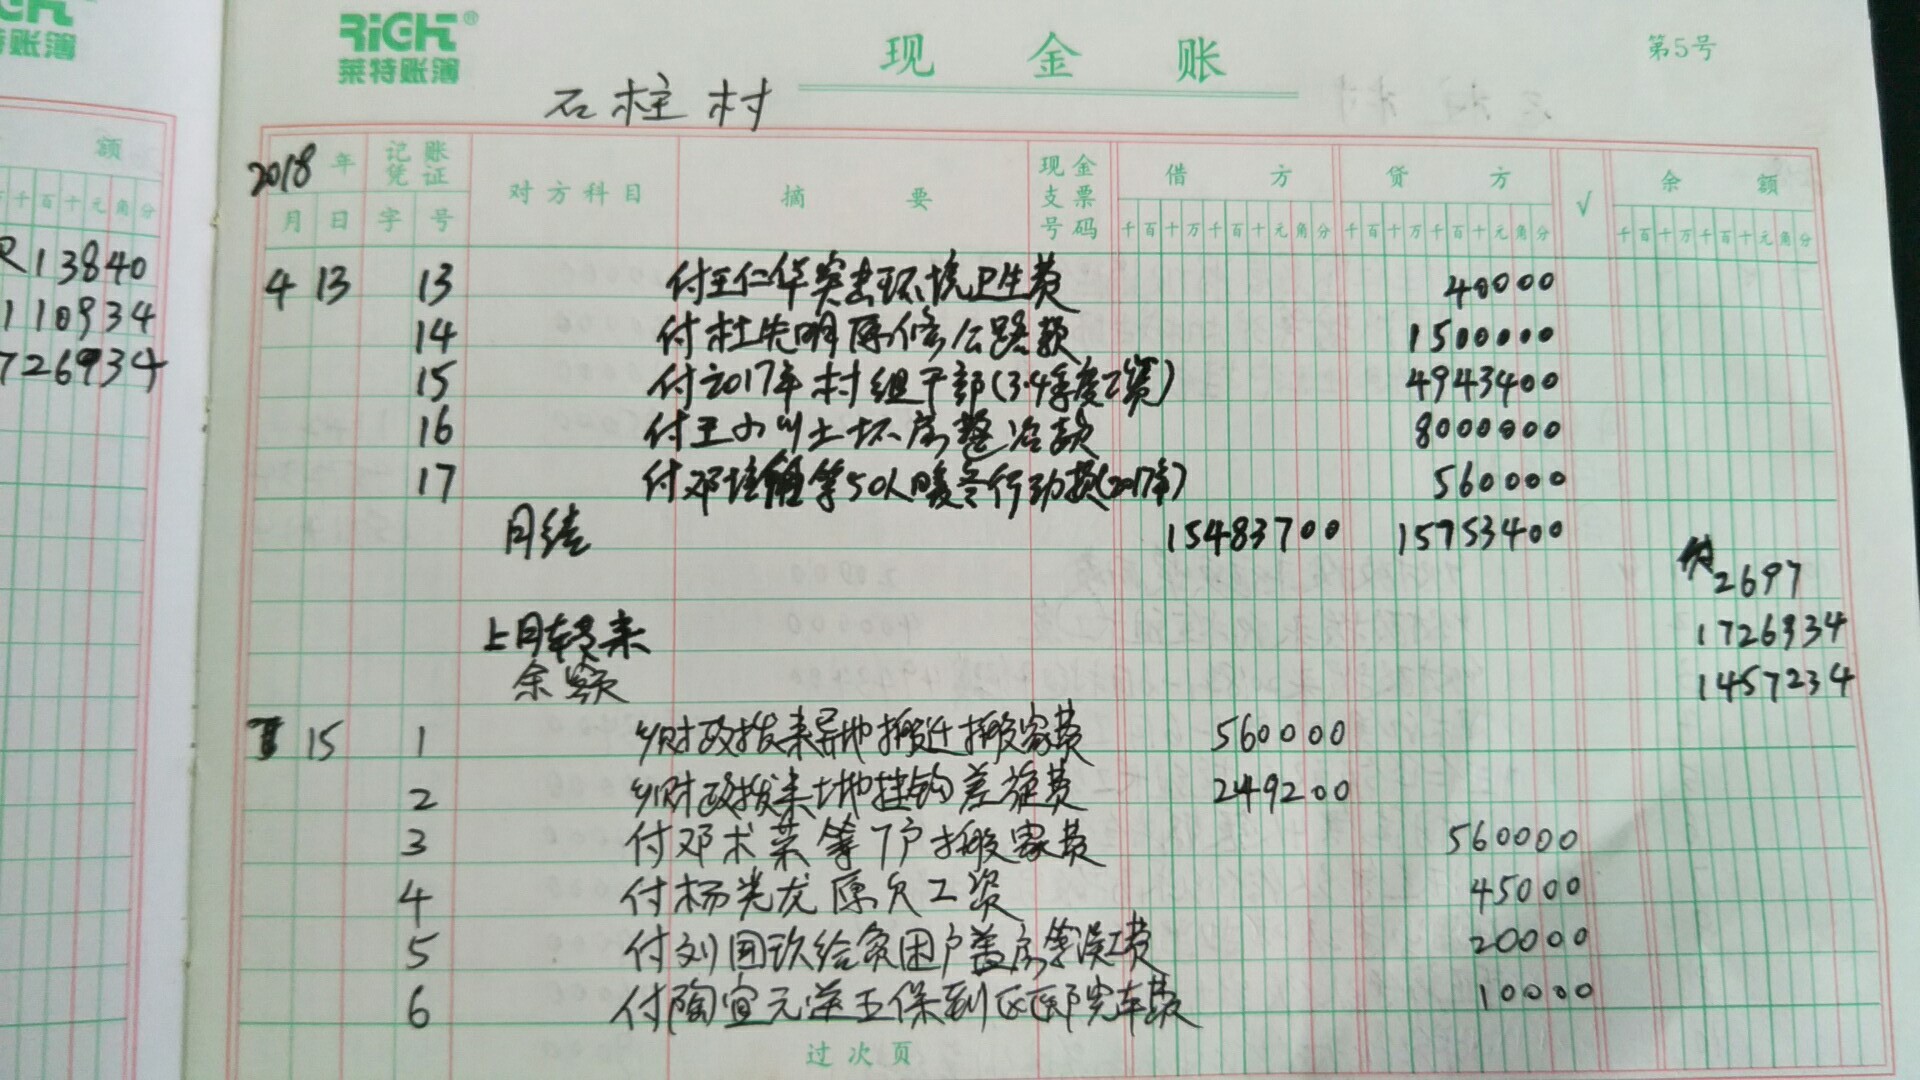 RiGHT®
莱特账簿
现金账
第5号
石柱村
2018年 记账凭证 对方科目 摘要 现金支票号码 借方 贷方 √ 余额
月 日 字 号 千百十万千百十元角分 千百十万千百十元角分 千百十万千百十元角分
4 13 13 付王仁华突击环境卫生费 40000
14 付杜先明原修公路款 1500000
15 付2017年村组干部(3.4季度工资) 4943400
16 付王小川土坯房整治款 8000000
17 付邓培 等50人暖冬行动款(2017年) 560000
月结 15483700 15753400
付2697
上月转来 1726934
余额 1457234
15 1 乡财政拨来异地搬迁搬家费 560000
2 乡财政拨来土地挂钩差旅费 249200
3 付邓术菜等7户搬家费 560000
4 付杨光龙原欠工资 45000
5 付刘国玖给贫困户盖房等误工费 20000
6 付陶宜元送五保到区医院车费 10000
过次页
额
千百十元角分
213840
110934
726934
莱特账簿